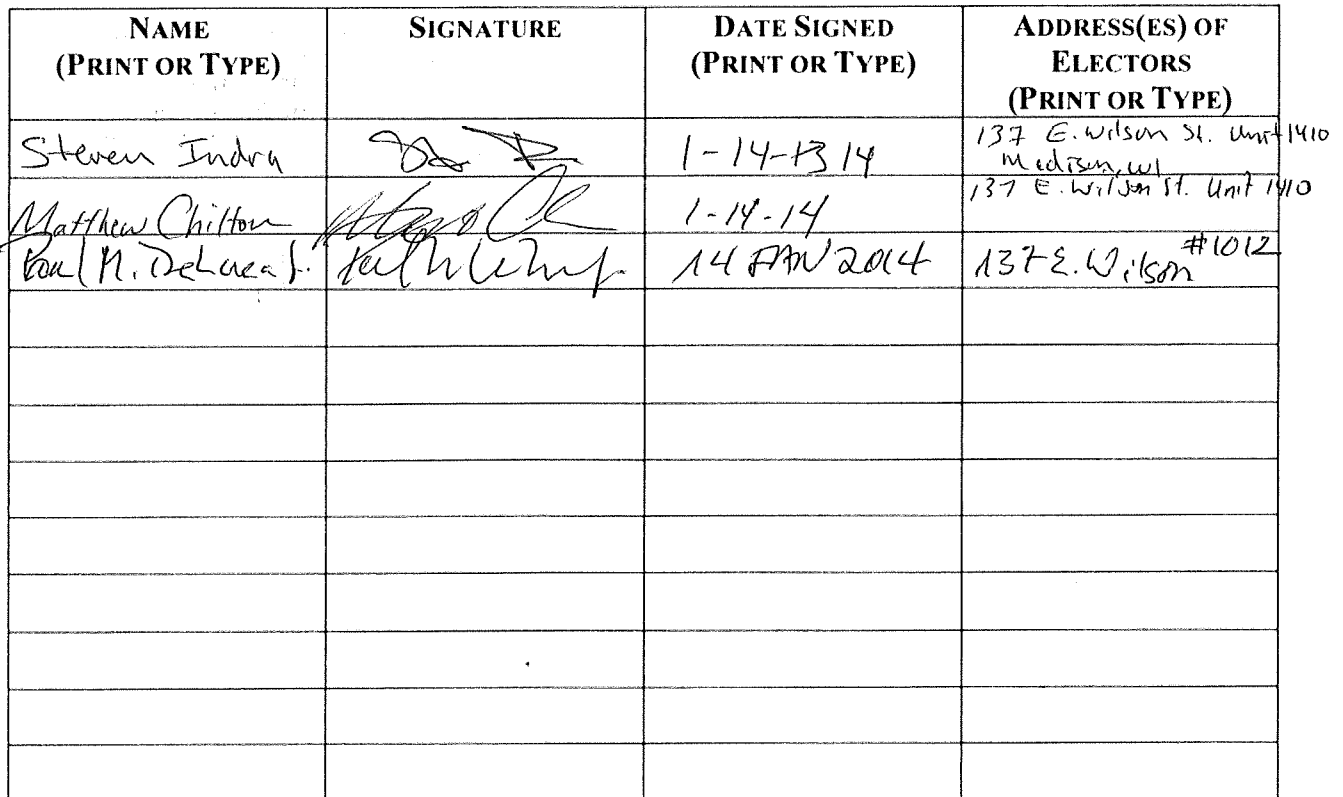 NAME
(PRINT OR TYPE)
SIGNATURE
DATE SIGNED
(PRINT OR TYPE)
ADDRESS(ES) OF
ELECTORS
(PRINT OR TYPE)
Steven Indra
1-14-13 14
137 E. Wilson St. Unit 1410
Madison, WI
Matthew Chilton
1-14-14
137 E. Wilson St. Unit 1410
Paul M.
14 JAN 2014
137 E. Wilson #1012